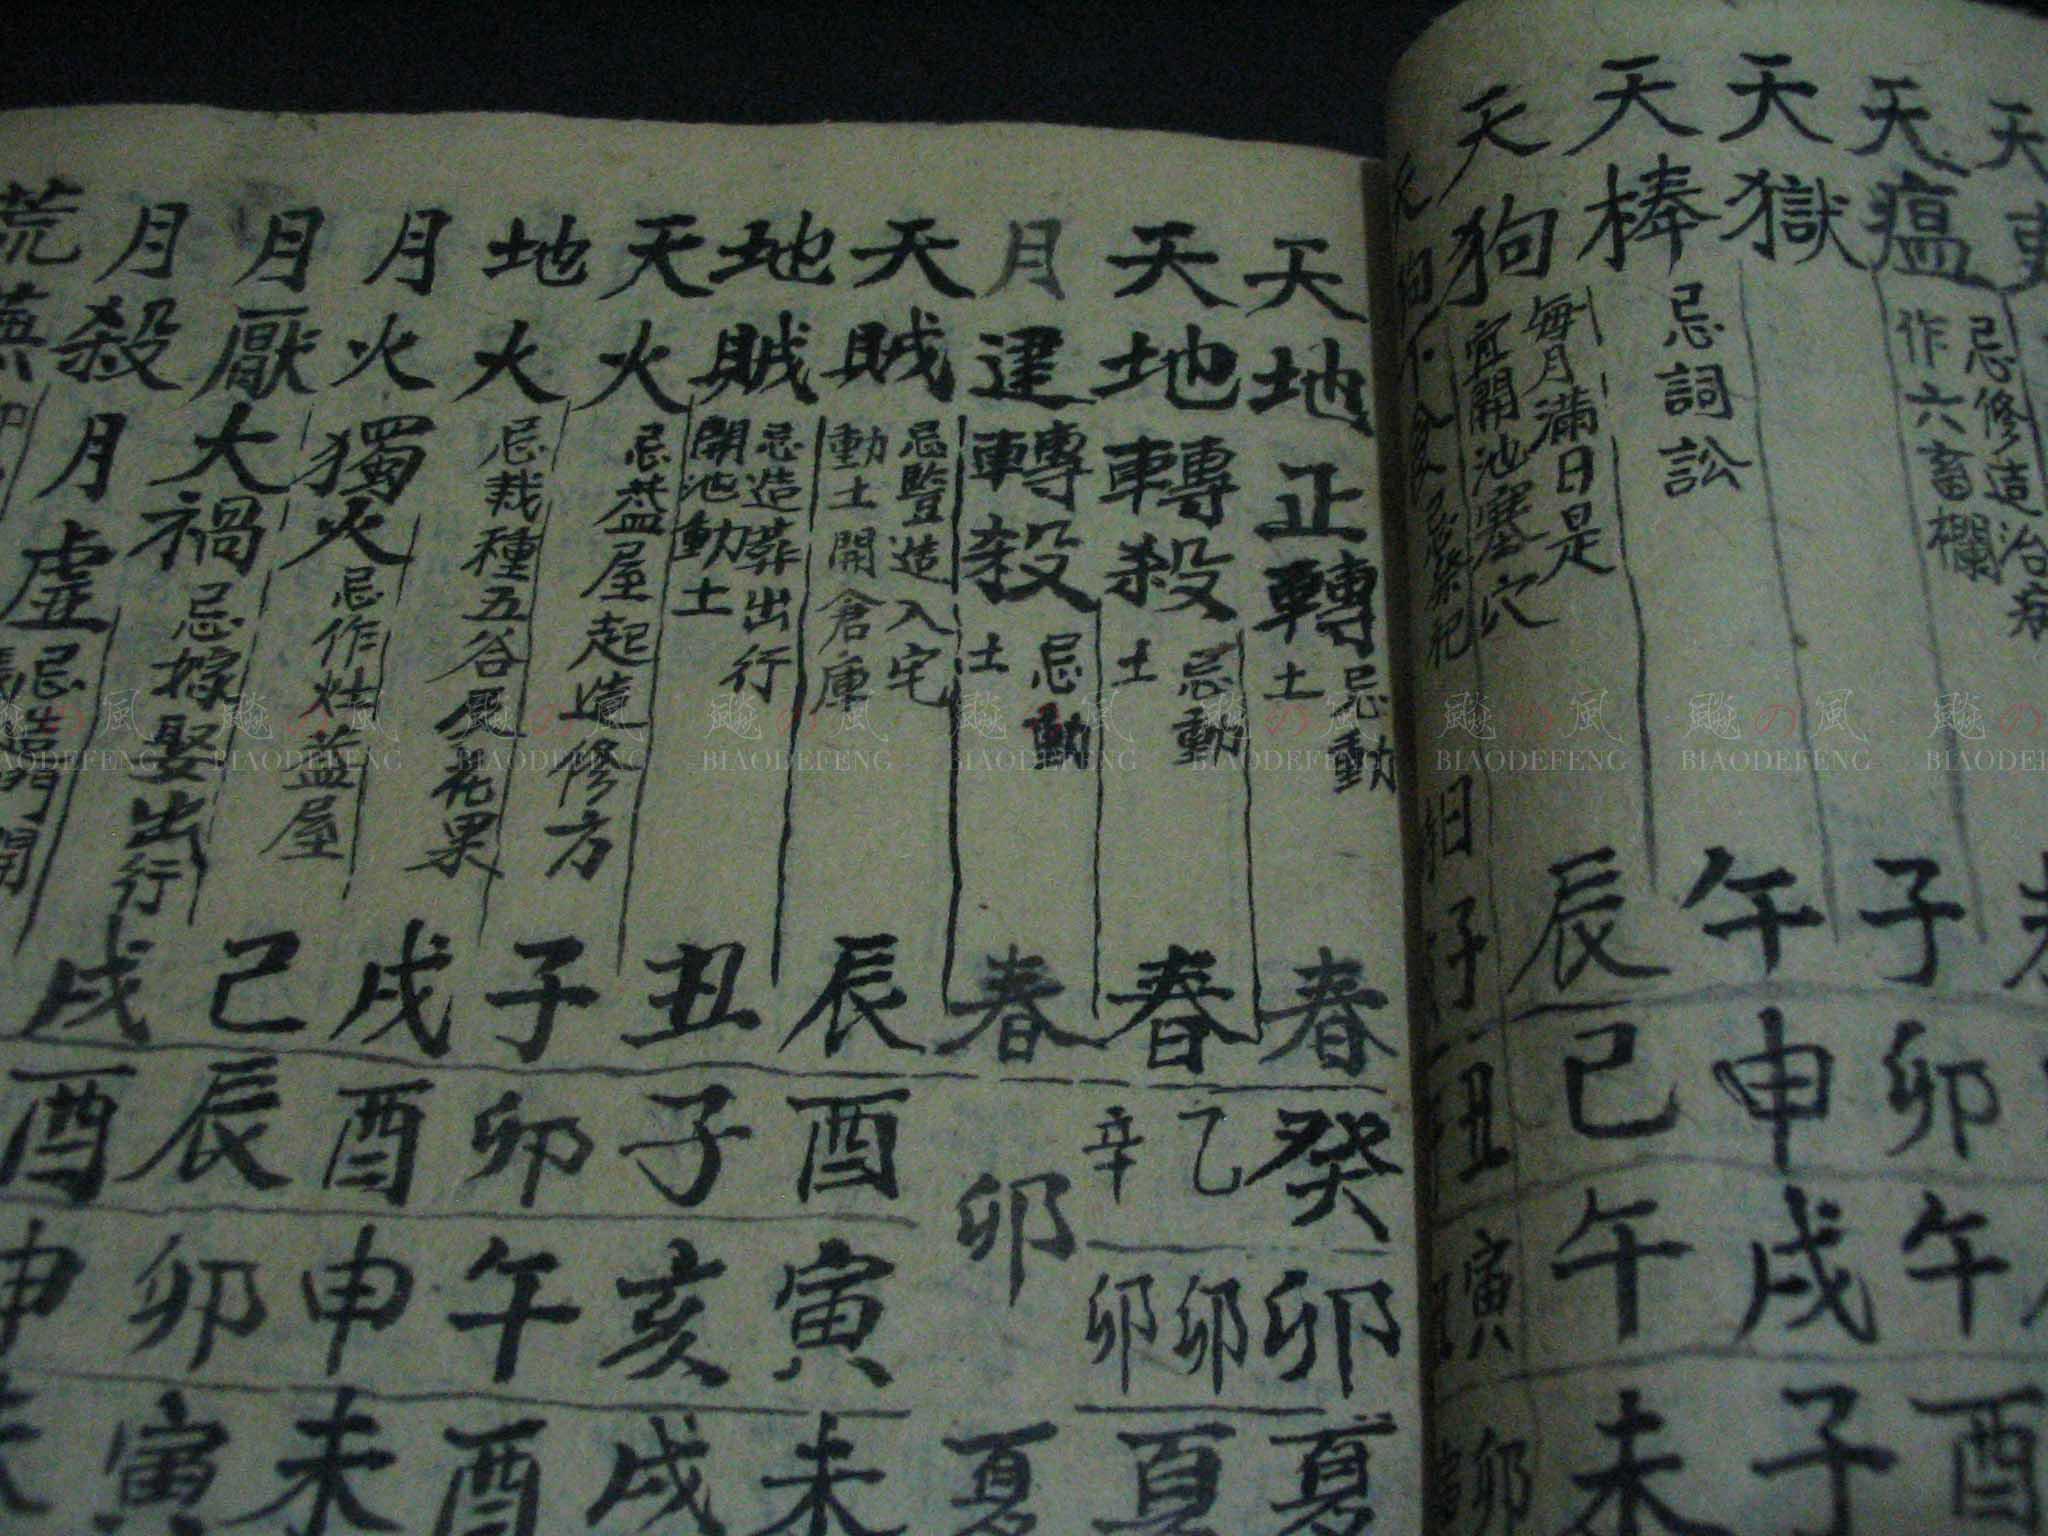 天瘟 忌修造治病作六畜欄 子 卯 午 酉
天獄 午 申 戌 子
天棒 忌詞訟 辰 己 午 未
天狗 每月滿日是宜開池塞穴
子 丑 寅 卯
天地正轉 忌動土 春 癸 卯 夏
天地轉殺 忌動土 春 乙卯 辛卯 夏
月建轉殺 忌動土 春 卯 夏
天賊 忌豎造入宅動土開倉庫 辰 酉 寅 未
地賊 忌造葬出行開池動土 丑 子 亥 戌
天火 忌蓋屋起造修方 子 卯 午 酉
地火 忌栽種五谷及花果 戌 酉 申 未
月火獨火 忌作灶蓋屋 己 辰 卯 寅
月厭大禍 忌嫁娶出行 戌 酉 申
月殺月虛 忌 門開
荒蕪
飈の風 BIAODEFENG